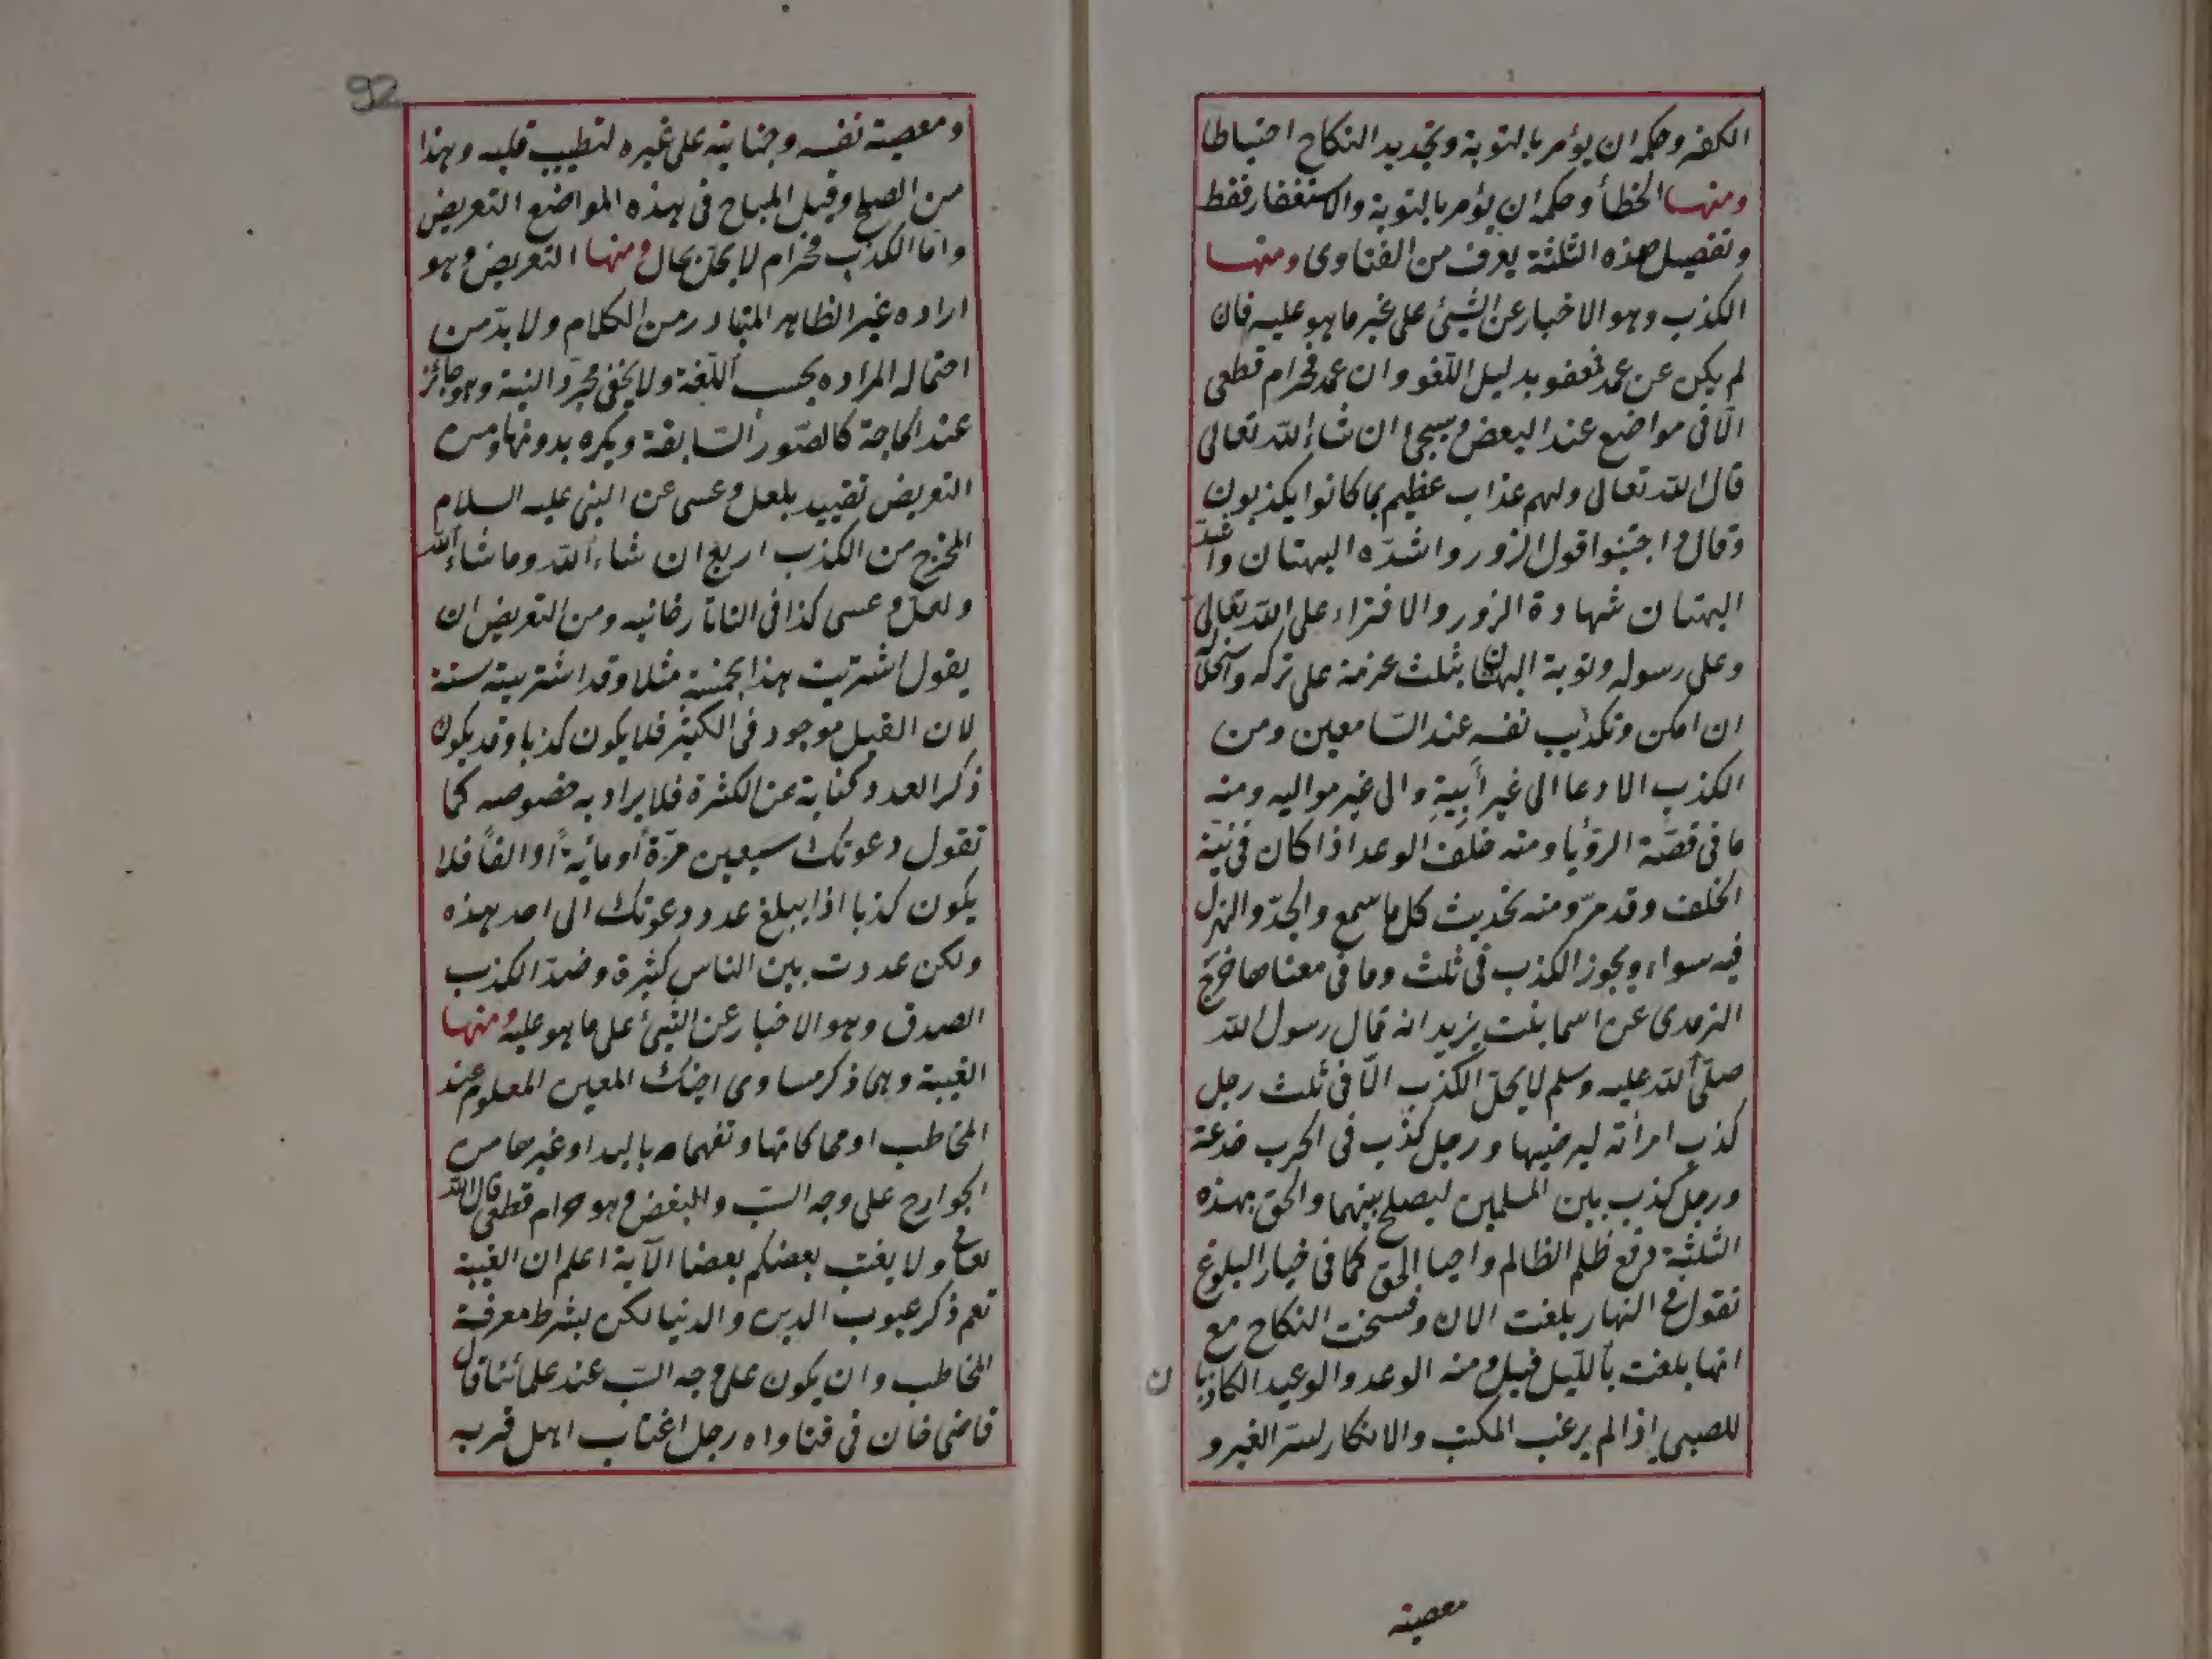 الكفر وحكمه ان يؤمر بالتوبة وتجديد النكاح احتياطا
ومنها الخطأ وحكمه ان يؤمر بالتوبة والاستغفار فقط
وتفصيل هذه الثلثة يعرف من الفتاوى ومنها
الكذب وهو الاخبار عن الشيئ على غير ما هو عليه فان
لم يكن عن عمد فعفو بدليل اللغو وان عمد فحرام قطعى
الّا فى مواضع عند البعض وسيجئ ان شاء الله تعالى
قال الله تعالى ولهم عذاب عظيم بما كانوا يكذبون
وقال واجتنبوا قول الزور واشدّه البهتان واشد
البهتان شهادة الزور والافتراء على الله تعالى
وعلى رسوله وتوبة البهتان بثلث عزمه على تركه واستحلاله
ان امكن وتكذيب نفسه عند السامعين ومن
الكذب الادعا الى غير أَبِيهِ والى غير مواليه ومنه
ما فى قصّة الرؤيا ومنه خلف الوعد اذا كان فى نيته
الخلف وقد مرّ ومنه تحديث كل ما سمع والجدّ والهزل
فيه سواء ويجوز الكذب فى ثلث وما فى معناها خرّج
الترمدى عن اسما بنت يزيد انه قال رسول الله
صلّى الله عليه وسلم لا يحلّ الكذب الّا فى ثلث رجل
كذب امرأته ليرضيها ورجل كذب فى الحرب خدعة
ورجل كذب بين المسلمين ليصلح بينهما والحق بهذه
الثلثة دفع ظلم الظالم واحيا الحق كما فى خيار البلوغ
تقول فى النهار بلغت الان وفسخت النكاح مع
انها بلغت بالليل قيل ومنه الوعد والوعيد الكاذبا
ن
للصبى اذا لم يرغب المكتب والانكار لسر الغير و
معصية
92
ومعصية نفسه وجنايته على غيره لتطييب قلبه وهذا
من الصلح وقيل المباح فى هذه المواضع التعريض
وامّا الكذب فحرام لا يحلّ بحال ومنها التعريض وهو
اراده غير الظاهر المتبادر من الكلام ولا بدّ من
احتماله المراده بحسب اللغة ولا يكفى مجرّد النية وهو جائز
عند الحاجة كالصّور السّابقة ويكره بدونها ومن
التعريض تقييد بلعل وعسى عن النبى عليه السلام
المخرج من الكذب اربع ان شاء الله وما شاء الله
ولعلّ وعسى كذا فى التاتارخانيه ومن التعريض ان
يقول اشتريت هذا بخمسة مثلا وقد اشتريته ستة
لان القيل موجود فى الكثير فلا يكون كذبا وقد يكون
ذكر العدد كناية عن الكثرة فلا يراد به خصوصه كما
تقول دعوتك سبعين مرّة أو مائة أو الفاً فلا
يكون كذبا اذا يبلغ عدد دعوتك الى احد هذه
ولكن عددت بين الناس كثرة وضدّ الكذب
الصدق وهو الاخبار عن الشيئ على ما هو عليه ومنها
الغيبة وهى ذكر مساوى اخيك المعين المعلوم عند
المخاطب او محاكاتها وتفهماه باليد او غيرها من
الجوارح على وجه السّب والبغض وهو حرام قطعى قال الله
تعالى ولا يغتب بعضكم بعضا الآية اعلم ان الغيبة
تعم ذكر عيوب الدين والدنيا لكن بشرط معرفة
المخاطب وان يكون على وجه السّب عند علمائنا قال
قاضى خان فى فتاواه رجل اغتاب اهل قريه